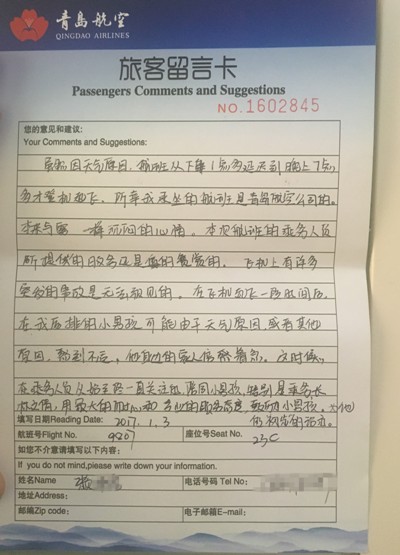 青岛航空
QINGDAO AIRLINES
旅客留言卡
Passengers Comments and Suggestions
NO.1602845
您的意见和建议:
Your Comments and Suggestions:
虽然因天气原因,航班从下午1点多延迟到晚上7点
多才登机起飞,所幸我乘坐的航班是青岛航空公司的。
一样的心情。本次航班的乘务人员
所提供的服务还是蛮的。飞机上有许多
的事故是无法预见的。在飞机起飞一段时间后,
在我后排的小男孩可能由于天气原因或者其他
原因,感到不适,他身边的家人倍感着急。这时候,
在乘务人员从始至终一直关注、陪同小男孩,特别是乘务长
用最大的耐心和的服务态度,小男孩
填写日期Reading Date: 2017.1.3
航班号Flight No. 9807
座位号Seat No. 23C
如您不介意请填写以下内容:
If you do not mind,please write down your information.
姓名Name 张
电话号码 Tel No:
地址Address:
邮编Zip code:
电子邮箱E-mail: